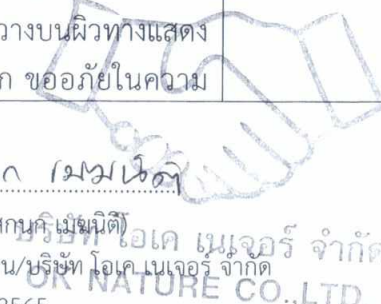 วางบนผิวทางแสดง
ก ขออภัยในความ
ก เมฆนิติ
สกนก เมฆนิติ)
บริษัท โอเค เนเจอร์ จำกัด
น/บริษัท โอเค เนเจอร์ จำกัด
OK NATURE CO.,LTD
2565